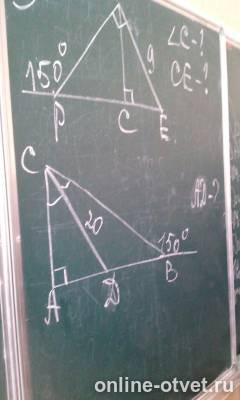 150° 9 ∠C-?
P C E CE-?
C
20 150° AD-?
A D B
online-otvet.ru